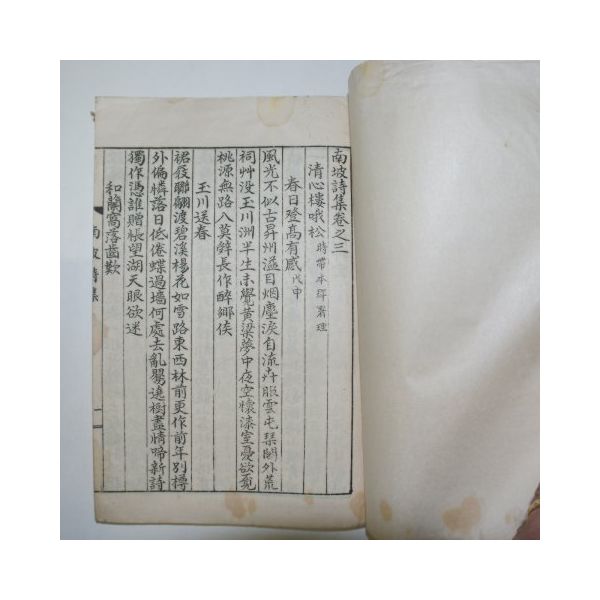 南坡詩集卷之三
清心樓哦松 時帶本驛署理
春日登高有感 戊申
風光不似古昇州溢目烟塵淚自流卉服雲屯琴閣外荒
祠艸没玉川洲半生未覺黃粱夢中夜空懷漆室憂欲覓
桃源無路入莫辭長作醉鄉侯
玉川送春
裙屐聯翩渡碧溪楊花如雪路東西林前更作前年別樽
外偏憐落日低倦蝶過墻何處去亂鸎遶樹盡情啼新詩
獨作憑誰贈悵望湖天眼欲迷
和蘭窩落齒歎
南坡詩集